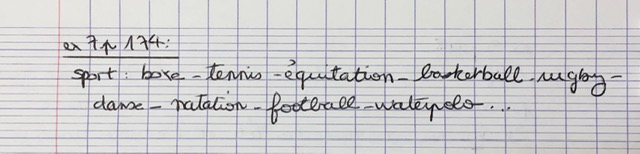 ex 7 p 174:
sport: boxe - tennis - équitation - basketball - rugby -
danse - natation - football - waterpolo...